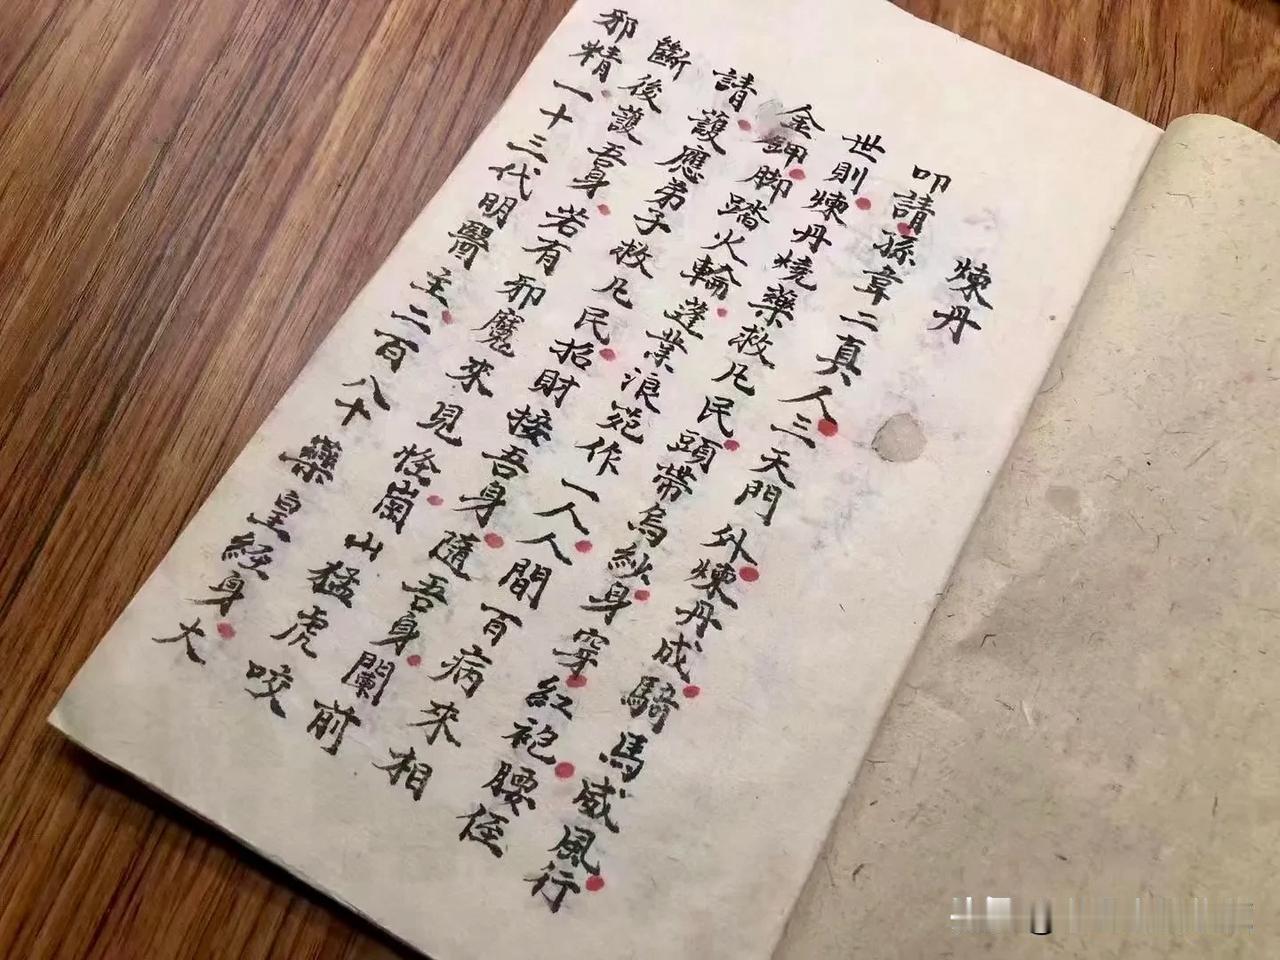 煉丹
叩請孫韋二真人三天門外煉丹成騎馬威風行
世則煉丹燒藥救凡民頭帶烏紗身穿紅袍腰侄
金鉀脚踏火輪蓬業浪苑作一人人間百病來相
請護應弟子救凡民招財接吾身隨吾身闌前
斷後護吾身若有邪魔來見崗山猛虎咬
邪精一十三代明醫主二百八十藥皇經身大